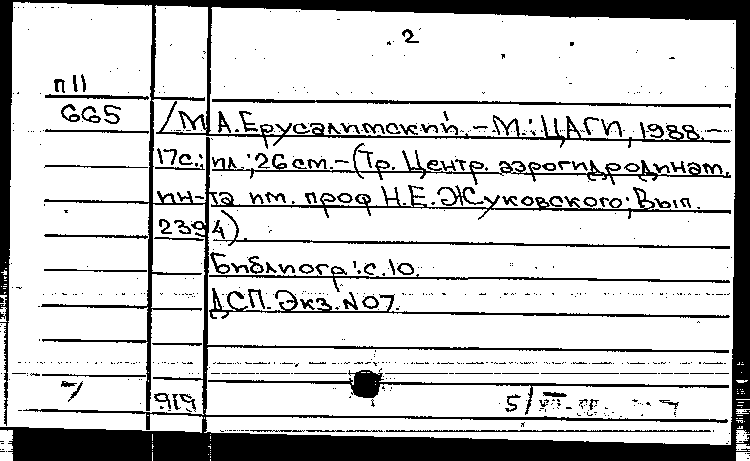 2
п11
665
/М.А.Ерусалимский.-М.:ЦАГИ,1988.-
17с.:ил.;26см.-(Тр. Центр. аэрогидродинам.
ин-та им. проф Н.Е.Жуковского;Вып.
2394).
Библиогр.:с.10.
ДСП.Экз.N07.
919
5/